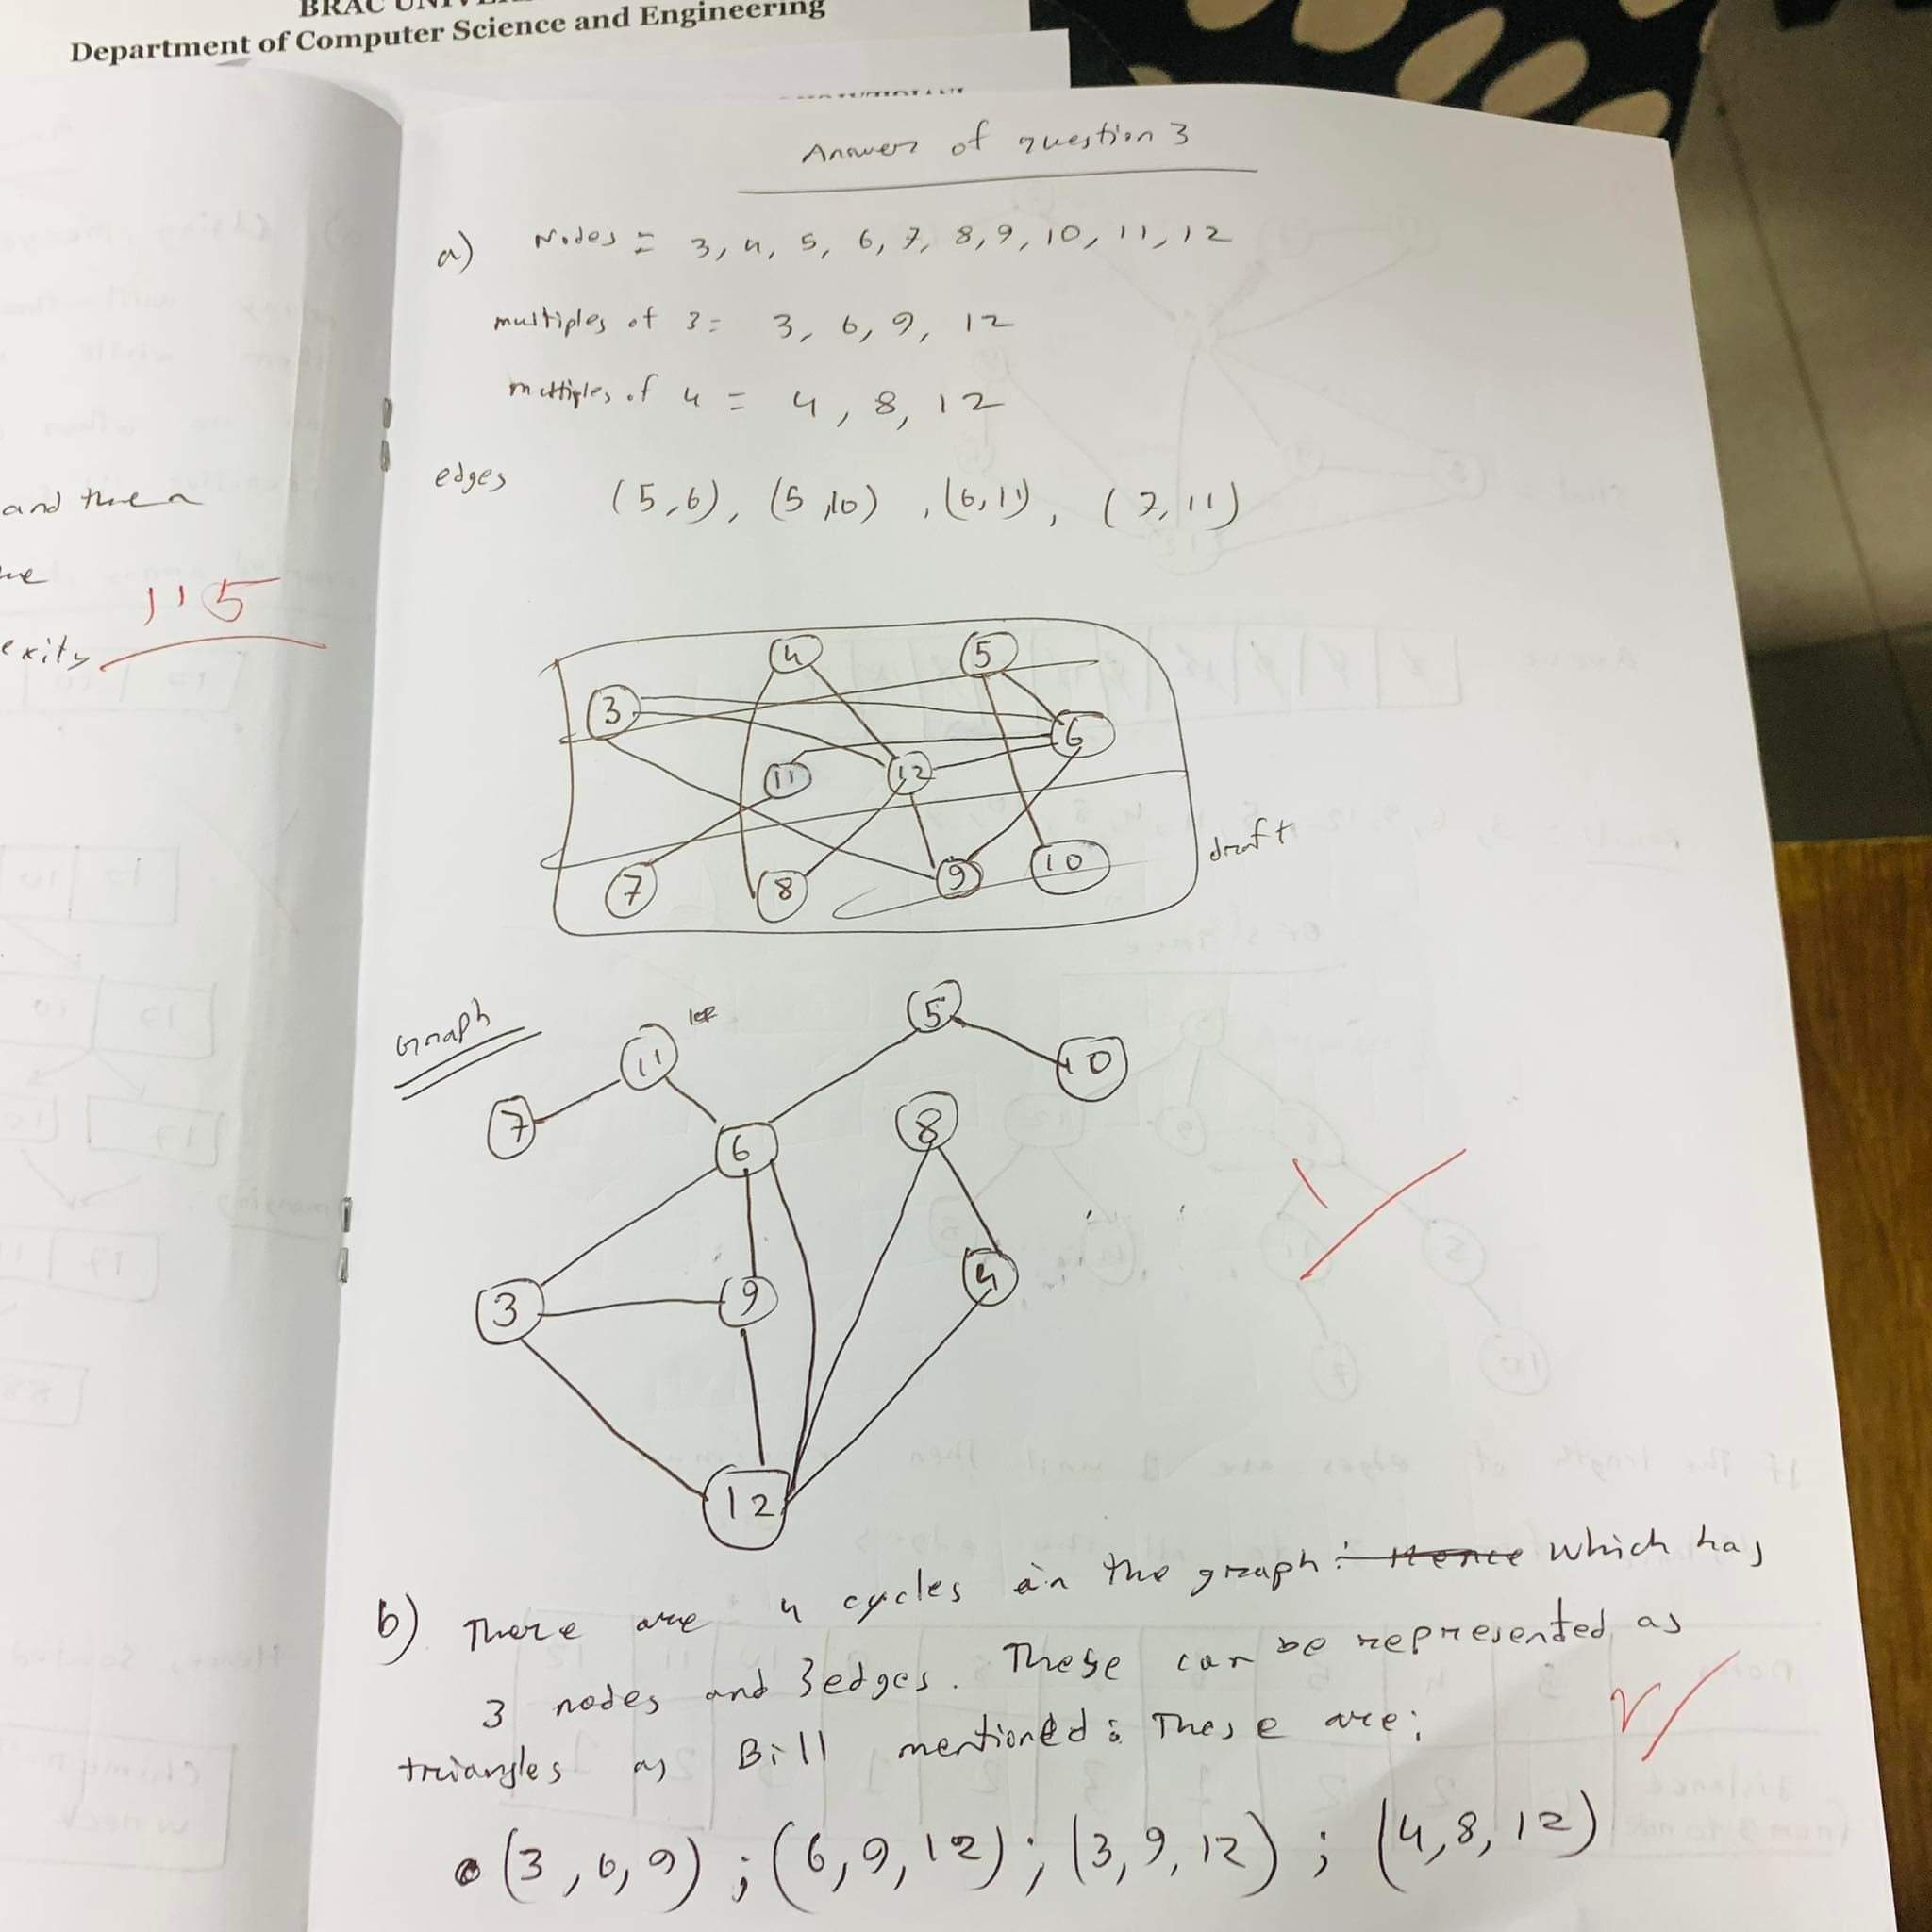 Department of Computer Science and Engineering
Answer of question 3
a) Nodes = 3, 4, 5, 6, 7, 8, 9, 10, 11, 12
multiples of 3 = 3, 6, 9, 12
multiples of 4 = 4, 8, 12
edges (5,6), (5,10), (6,11), (7,11)
and then
1.5
exity
4 5
3 6
11 12
7 8 9 10
draft
Graph
11 5
7 10
6 8
3 9 4
12
b) There are 4 cycles in the graph which has
3 nodes and 3 edges. These can be represented as
triangles as Bill mentioned: These are:
(3, 6, 9) ; (6, 9, 12) ; (3, 9, 12) ; (4, 8, 12)